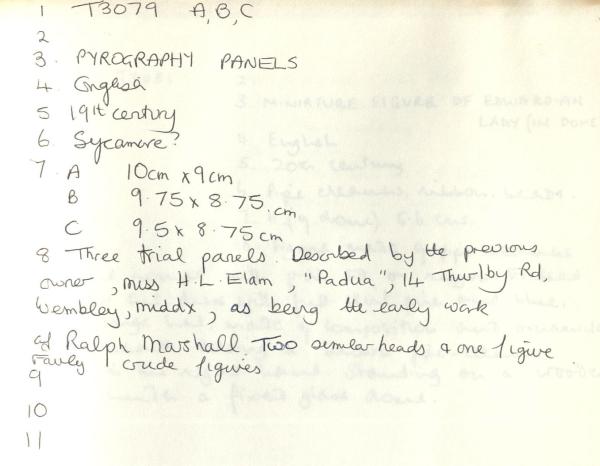 1 T3079 A,B,C
2
3. PYROGRAPHY PANELS
4. English
5 19th century
6. Sycamore?
7. A 10cm x 9cm
B 9.75 x 8.75.cm
C 9.5 x 8.75cm
8 Three trial panels. Described by the previous
owner, miss H.L. Elam, "Padua", 14 Thurlby Rd,
Wembley, middx, as being the early work
of Ralph Marshall. Two similar heads & one figure
fairly crude figures
9
10
11